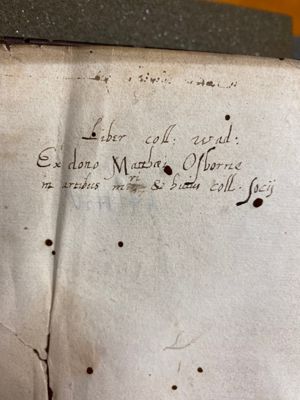 Liber coll: wad:
Ex dono Matthæi Osborne
in artibus mri & huius coll. Socij